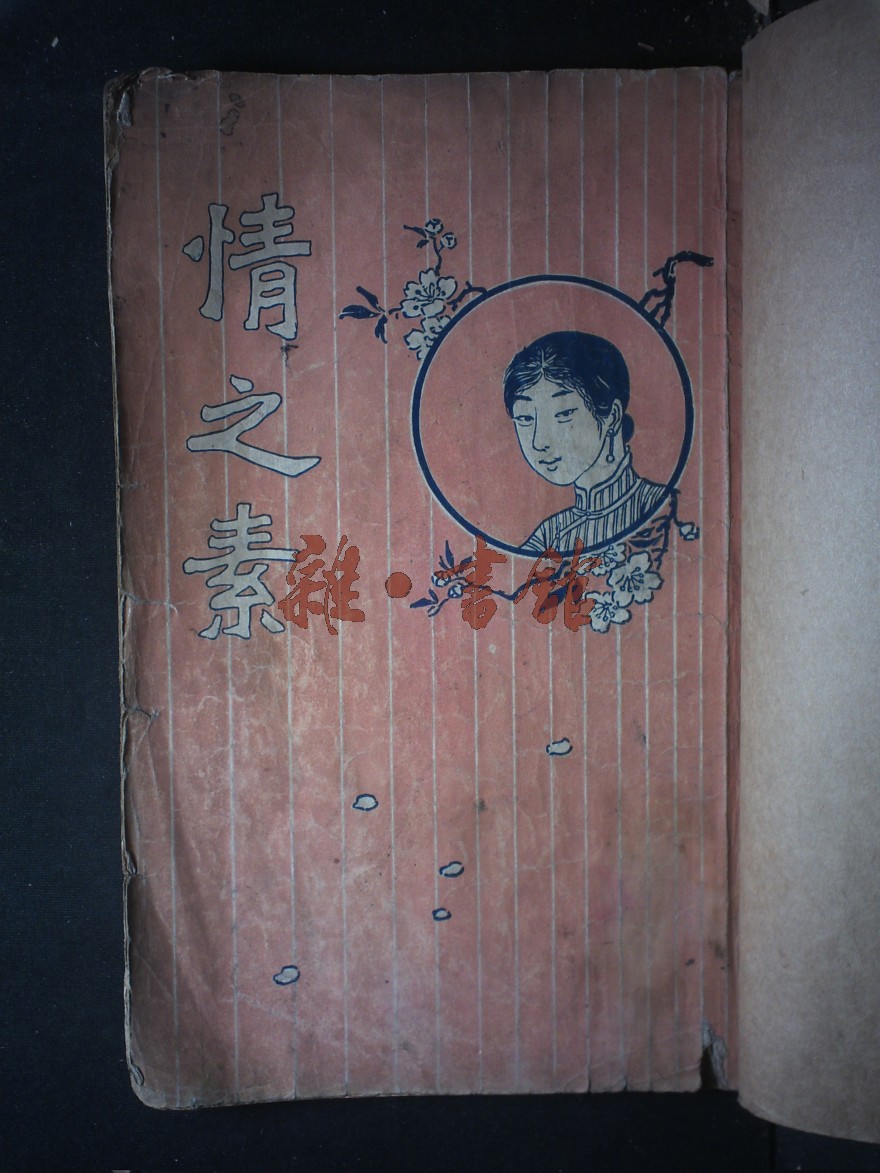 情之素
雜·書館